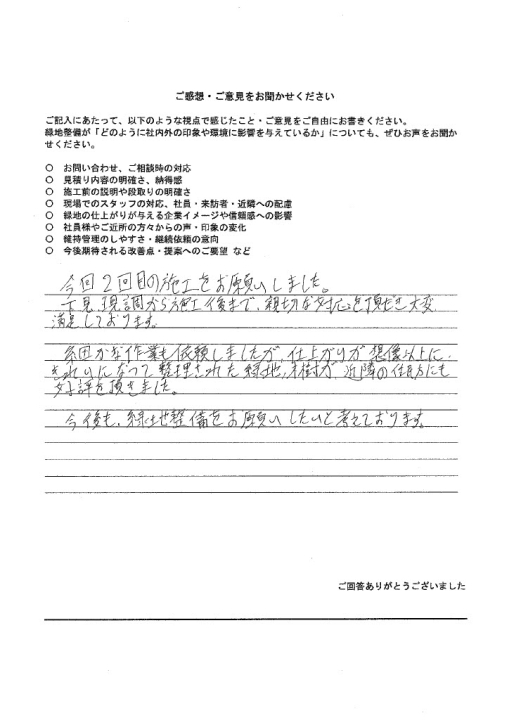 ご感想・ご意見をお聞かせください
ご記入にあたって、以下のような視点で感じたこと・ご意見をご自由にお書きください。
緑地整備が「どのように社内外の印象や環境に影響を与えているか」についても、ぜひお声をお聞か
せください。
○ お問い合わせ、ご相談時の対応
○ 見積り内容の明確さ、納得感
○ 施工前の説明や段取りの明確さ
○ 現場でのスタッフの対応、社員・来訪者・近隣への配慮
○ 緑地の仕上がりが与える企業イメージや信頼感への影響
○ 社員様やご近所の方々からの声・印象の変化
○ 維持管理のしやすさ・継続依頼の意向
○ 今後期待される改善点・提案へのご要望 など
今回2回目の施工をお願いしました。
下見、現調から施工後まで、親切な対応を頂だき大変
満足しております。
細かな作業も依頼しましたが、仕上がりが想像以上に、
きれいになって整理された緑地、樹が近隣の住民方にも
好評を頂きました。
今後も、緑地整備をお願いしたいと考えております。
ご回答ありがとうございました